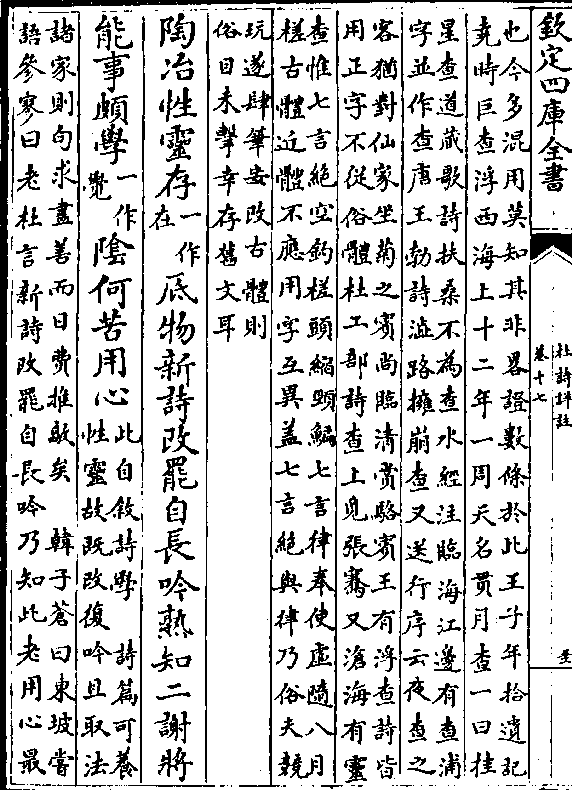 欽定四庫全書
杜詩詳註
卷十七
也今多混用莫知其非畧證數條於此王子年拾遺記
堯時巨查浮西海上十二年一周天名貫月查一曰挂
星查道藏歌詩扶桑不為查水經注臨海江邊有查浦
字並作查唐王勃詩澁路擁崩查又送行序云夜查之
客猶對仙家坐菊之賓尚臨清賞駱賓王有浮查詩皆
用正字不從俗體杜工部詩查上覓張騫又滄海有靈
查惟七言絶空釣槎頭縮頸鯿七言律奉使虛隨八月
槎古體近體不應用字互異盖七言絶與律乃俗夫競
玩遂肆筆妄改古體則
俗目未擊幸存舊文耳
陶冶性靈存一作在底物新詩改罷自長吟熟知二謝將
能事頗學一作覺陰何苦用心此自敘詩學 詩篇可養性靈故既改復吟且取法
諸家則句求盡善而日費推敲矣 韓子蒼曰東坡嘗
語參寥曰老杜言新詩改罷自長吟乃知此老用心最